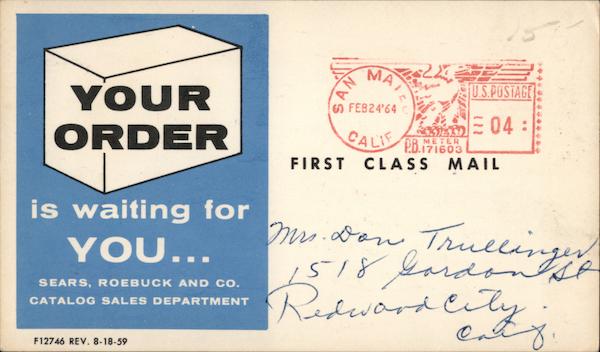 YOUR
ORDER
is waiting for
YOU...
SEARS, ROEBUCK AND CO.
CATALOG SALES DEPARTMENT
F12746 REV. 8-18-59
15
SAN MATEO
FEB24'64
CALIF
U.S.POSTAGE
04
P.B. METER
171603
FIRST CLASS MAIL
Mrs. Don Trullinger
1518 Gordon St
Redwood City.
Calif.